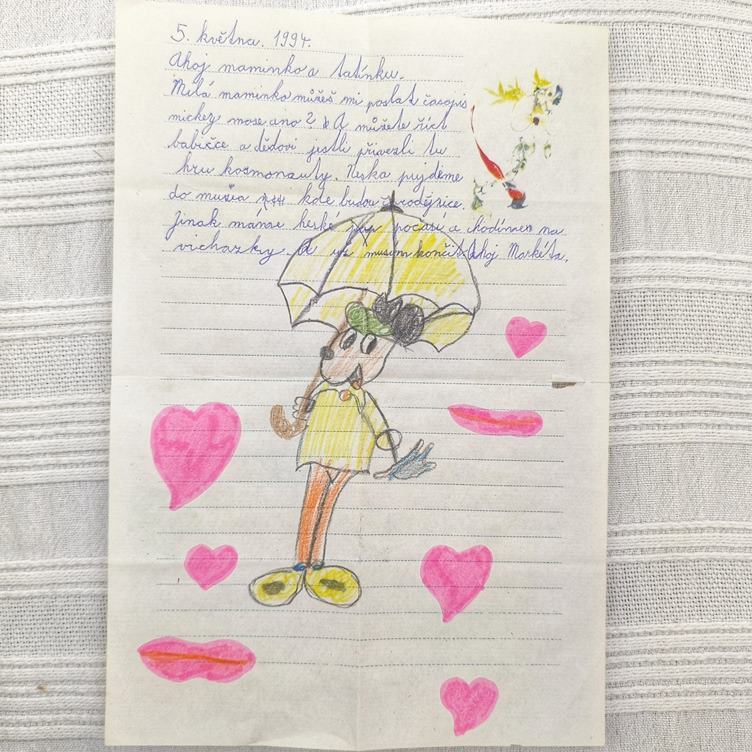 5. května. 1994.
Ahoj maminko a tatínku.
Milá maminko můžeš mi poslat časopis
mickey mose ano? A můžete říct
babičce a dědovi jestli přivezli tu
hru kosmonauty. Neska pujdeme
do muzia kde budou čarodějnice.
Jinak máme heské počasí a chodíme na
vichazky. A uz musim končit Ahoj Markéta.